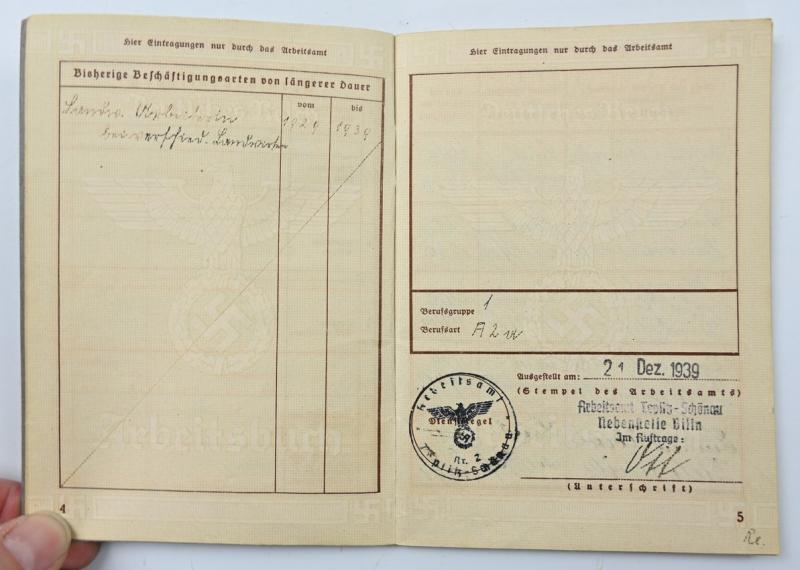 Hier Eintragungen nur durch das Arbeitsamt
Bisherige Beschäftigungsarten von längerer Dauer
vom bis
Landw. Arbeiterin 1929 1939
bei verschied. Landwirten
4
Hier Eintragungen nur durch das Arbeitsamt
Berufsgruppe 1
Berufsart A 2 a
Ausgestellt am: 21 Dez. 1939
(Stempel des Arbeitsamts)
Arbeitsamt Teplitz-Schönau
Nebenstelle Bilin
Im Auftrage:
Ott
(Unterschrift)
Arbeitsamt
Dienstsiegel
Nr. 2
Teplitz-Schönau
5
Re.